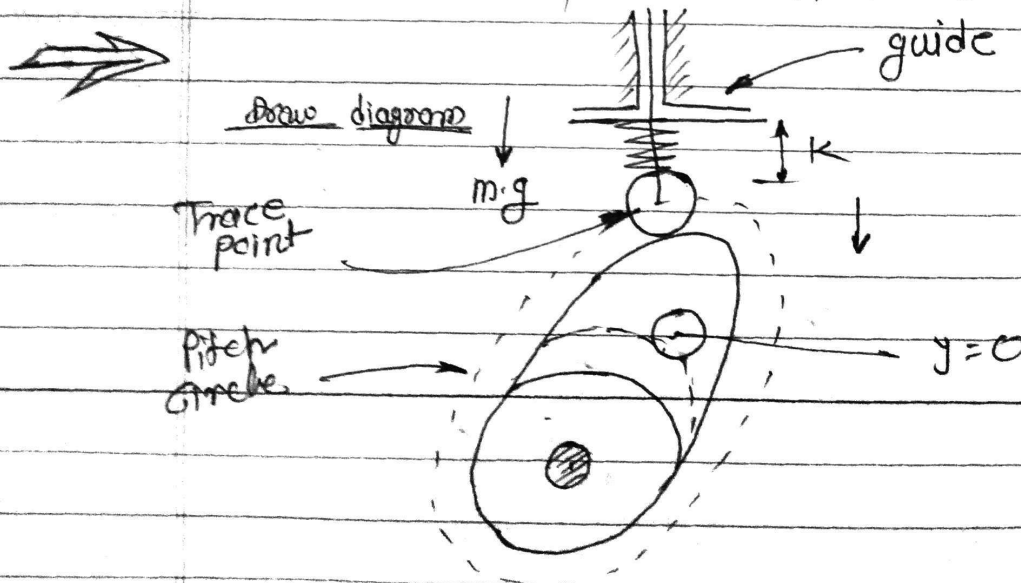 guide
Draw diagram
m.g
K
Trace
point
y = 0
Pitch
circle